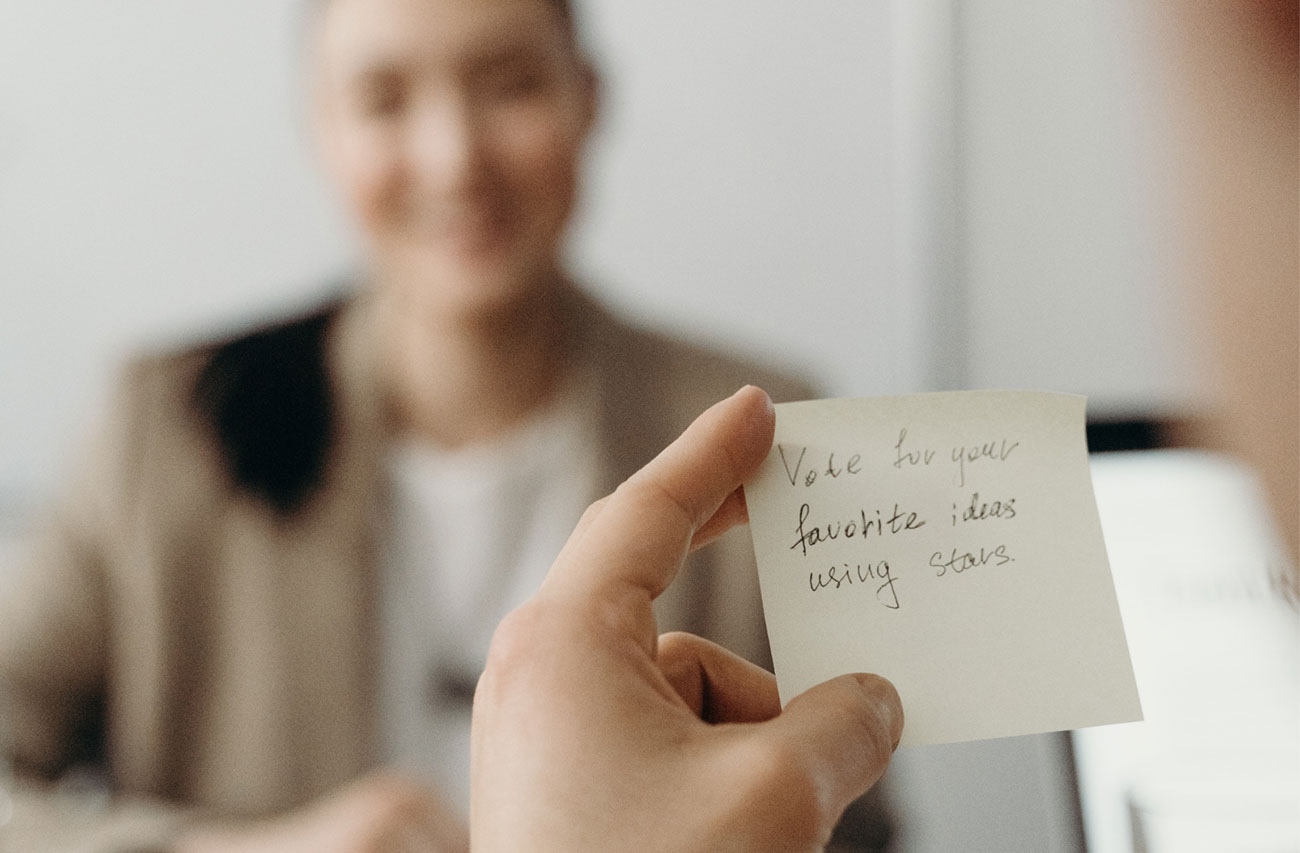 Vote for your
favorite ideas
using stars.